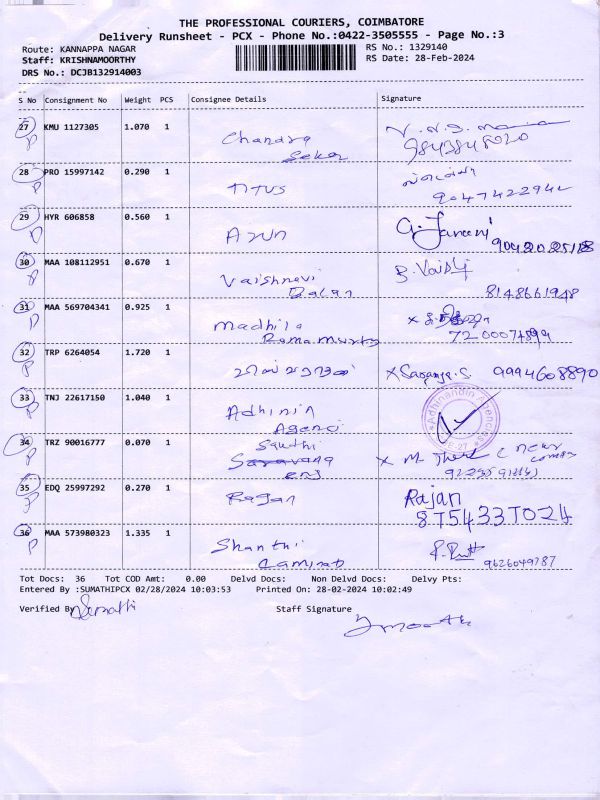 THE PROFESSIONAL COURIERS, COIMBATORE
Delivery Runsheet - PCX - Phone No.:0422-3505555 - Page No.:3
Route: KANNAPPA NAGAR
RS No.: 1329140
Staff: KRISHNAMOORTHY
RS Date: 28-Feb-2024
DRS No.: DCJB132914003
S No Consignment No Weight PCS Consignee Details Signature
27 KMU 1127305 1.070 1
P Chandra
Sekar
28 PRO 15997142 0.290 1
P TITUS 9047422942
29 HYR 606858 0.560 1 G. Janani
P Arun 9042025118
30 MAA 108112951 0.670 1 B. Vaish
P Vaishnavi
Balan 8148661948
31 MAA 569704341 0.925 1
P Madhila
Rama Murthy
32 TRP 6264054 1.720 1
P x Saranya. S. 9994608890
33 TNJ 22617150 1.040 1
P Adhinin
Agenci
Adhinandin Agencies
34 TRZ 90016777 0.070 1
P Saravana
35 EDQ 25997292 0.270 1 Rajan
P Rajan 8754337024
36 MAA 573980323 1.335 1
P Shanthi
9626049787
Tot Docs: 36 Tot COD Amt: 0.00 Delvd Docs: Non Delvd Docs: Delvy Pts:
Entered By :SUMATHIPCX 02/28/2024 10:03:53 Printed On: 28-02-2024 10:02:49
Verified By Sumathi Staff Signature